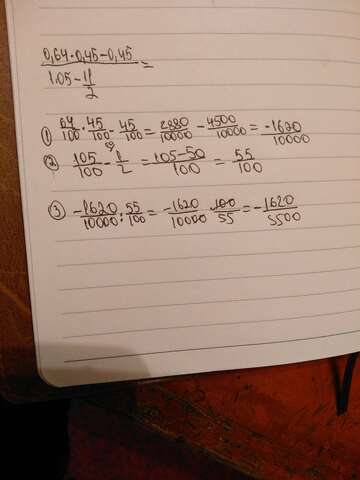 0,64·0,45-0,45
1.05-1/2 =
① 64/100 · 45/100 - 45/100 = 2880/10000 - 4500/10000 = -1620/10000
② 105/100 - 1/2 = 105-50/100 = 55/100
③ -1620/10000 : 55/100 = -1620/10000 · 100/55 = -1620/5500